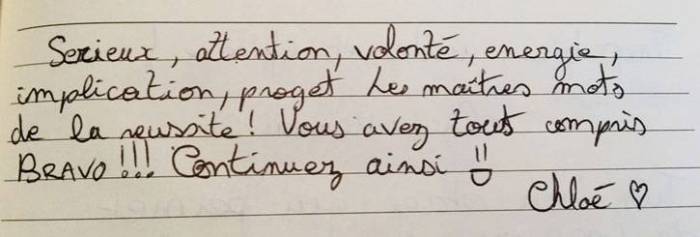 Serieux, attention, volonté, energie,
implication, proget Les maîtres mots
de la reussite! Vous avez tout compris
BRAVO!!! Continuez ainsi
Chloé ♡